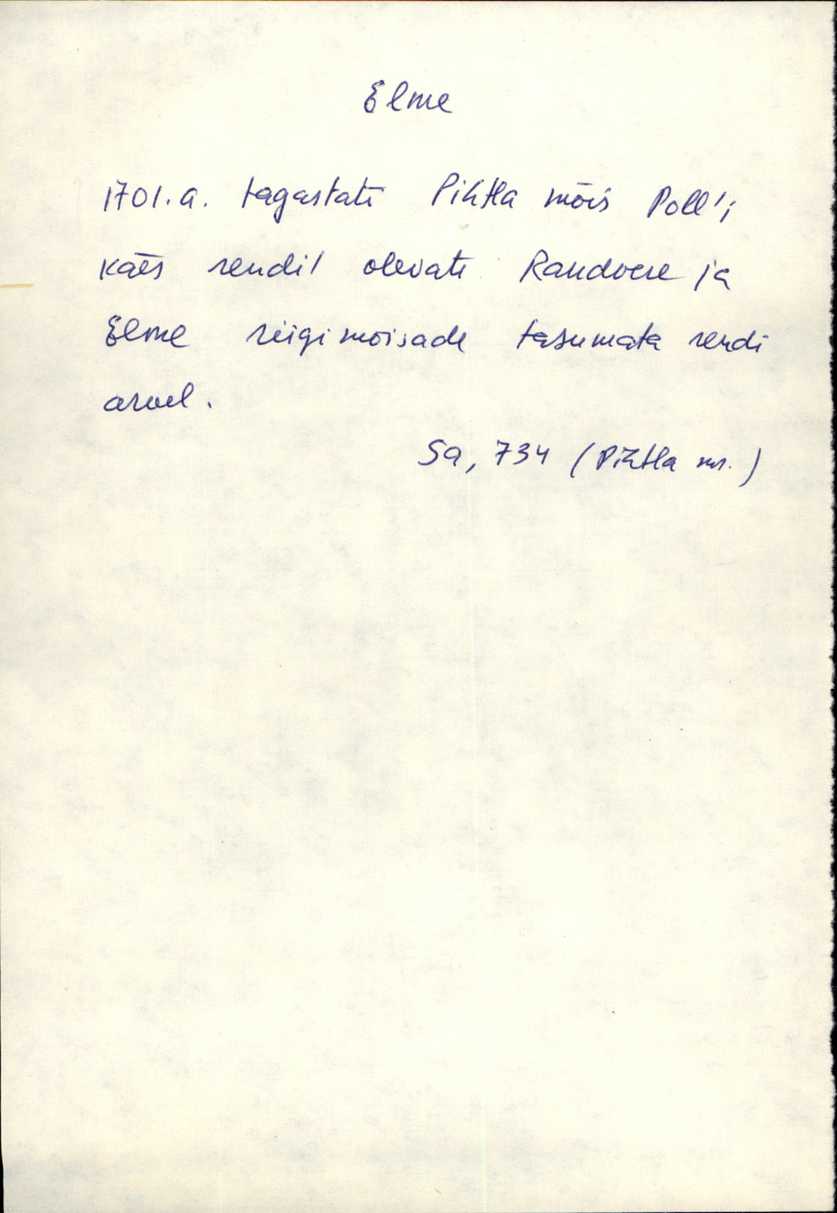 Elme
1701.a. tagastati Pihtla mõis Poll'i
käes rendil olevate Randvere ja
Elme riigimõisade tasumata rendi
arvel.
Sa, 734 (Pihtla m.)